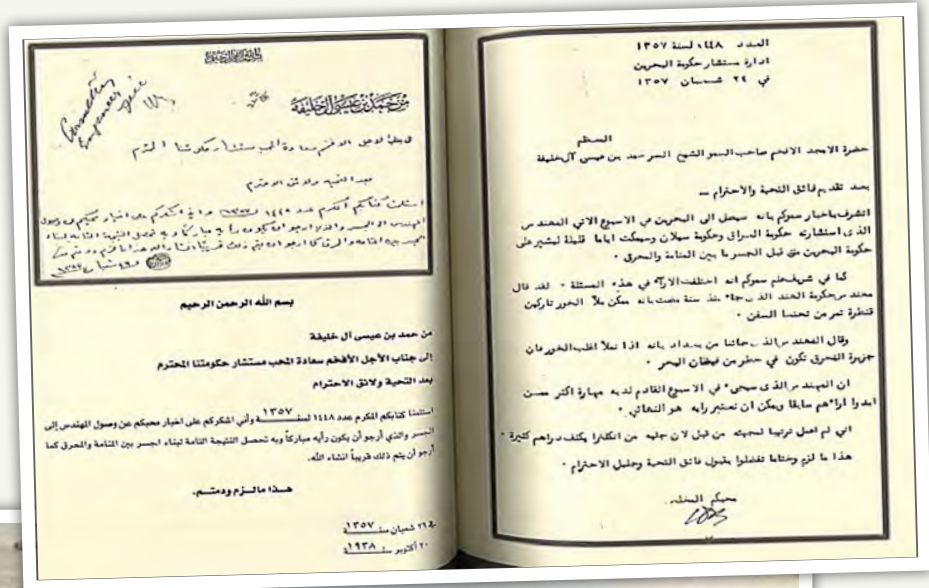 العدد ١٤٤٨ لسنة ١٣٥٧
ادارة مستشار حكومة البحرين
في ٢٤ شعبان ١٣٥٧
المعظم
حضرة الامجد الافخم صاحب السمو الشيخ السر حمد بن عيسى آل خليفة
بعد تقديم فائق التحية والاحترام —
اتشرف باخبار سموكم بانه سيصل الى البحرين في الاسبوع الاتي المهندس
الذى استشارته حكومة العراق وحكومة سيلان وسيمكث اياما قليلة ليشير على
حكومة البحرين من قبل الجسر ما بين المنامة والمحرق ٠
كما في شريف علم سموكم انه اختلفت الآراء في هذه المسئلة ٠ لقد قال
مهندس حكومة الهند الذى جاء منذ سنة مضت بانه ممكن ملأ الخور تاركين
قنطرة تمر من تحتها السفن ٠
وقال المهندس الذى جائنا من بغداد بانه اذا نملأ اغلب الخور فان
جزيرة المحرق تكون في خطر من فيضان البحر ٠
ان المهندس الذى سيجىء في الاسبوع القادم لديه مهارة اكثر ممن
ابدوا آراءهم سابقا ويمكن ان نعتبر رايه هو النهائي ٠
اني لم اعمل ترتيبا لمجيئه من قبل لان جلبه من انكلترا يكلف دراهم كثيرة ٠
هذا ما لزم وختاما تفضلوا بقبول فائق التحية وجليل الاحترام ٠
محبكم المخلص
من حمد بن عيسى آل خليفة
Consulting
Engineer
بعد التحية ولائق الاحترام
بسم الله الرحمن الرحيم
من حمد بن عيسى آل خليفة
إلى جناب الأجل الأفخم سعادة المحب مستشار حكومتنا المحترم
بعد التحية ولائق الاحترام
استلمنا كتابكم المكرم عدد ١٤٤٨ لسنة ١٣٥٧ وأني اشكركم على اخبار محبكم عن وصول المهندس إلى
الجسر والذي أرجو أن يكون رأيه مباركاً وبه تحصل النتيجة التامة لبناء الجسر بين المنامة والمحرق كما
أرجو أن يتم ذلك قريباً انشاء الله.
هذا مالزم ودمتم.
في ٢٦ شعبان سنة ١٣٥٧
٢٠ أكتوبر سنة ١٩٣٨